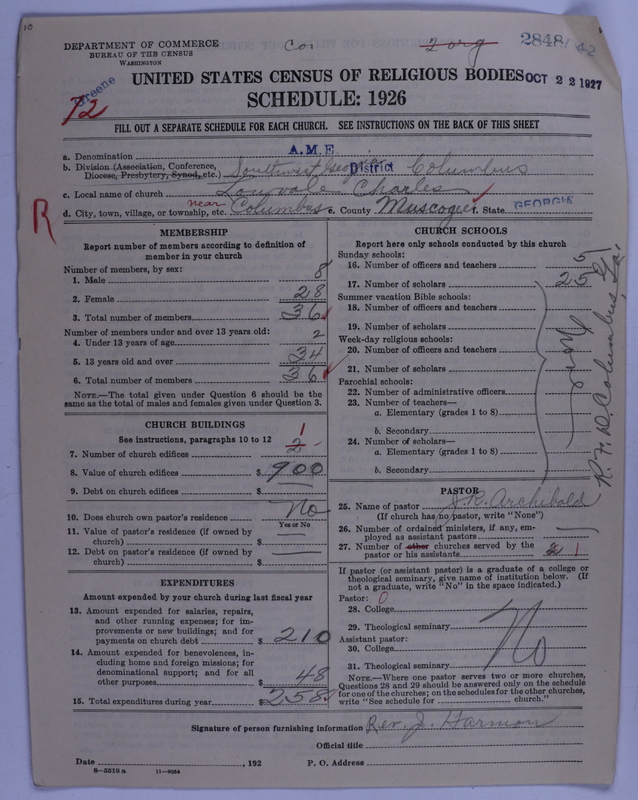 10
DEPARTMENT OF COMMERCE
BUREAU OF THE CENSUS
WASHINGTON
Greene
72
2 org
2848/42
UNITED STATES CENSUS OF RELIGIOUS BODIES OCT 22 1927
SCHEDULE: 1926
FILL OUT A SEPARATE SCHEDULE FOR EACH CHURCH. SEE INSTRUCTIONS ON THE BACK OF THIS SHEET
a. Denomination A.M.E.
b. Division (Association, Conference, Diocese, Presbytery, Synod, etc.) Southwest Georgia District Columbus
c. Local name of church Charles
R
d. City, town, village, or township, etc. near Columbus e. County Muscogee f. State GEORGIA
MEMBERSHIP
Report number of members according to definition of
member in your church
Number of members, by sex:
1. Male 8
2. Female 28
3. Total number of members 36
Number of members under and over 13 years old:
4. Under 13 years of age 2
5. 13 years old and over 34
6. Total number of members 36
NOTE.—The total given under Question 6 should be the
same as the total of males and females given under Question 3.
CHURCH BUILDINGS
See instructions, paragraphs 10 to 12
7. Number of church edifices 2 1
8. Value of church edifices $ 900
9. Debt on church edifices $
10. Does church own pastor's residence No
Yes or No
11. Value of pastor's residence (if owned by
church) $
12. Debt on pastor's residence (if owned by
church) $
EXPENDITURES
Amount expended by your church during last fiscal year
13. Amount expended for salaries, repairs,
and other running expenses; for im-
provements or new buildings; and for
payments on church debt $ 210
14. Amount expended for benevolences, in-
cluding home and foreign missions; for
denominational support; and for all
other purposes $ 48
15. Total expenditures during year $ 258
CHURCH SCHOOLS
Report here only schools conducted by this church
Sunday schools:
16. Number of officers and teachers 5
17. Number of scholars 25
Summer vacation Bible schools:
18. Number of officers and teachers
19. Number of scholars
Week-day religious schools:
20. Number of officers and teachers
21. Number of scholars
Parochial schools:
22. Number of administrative officers
23. Number of teachers—
a. Elementary (grades 1 to 8)
b. Secondary
24. Number of scholars—
a. Elementary (grades 1 to 8)
b. Secondary
None
R. F. D. Columbus, Ga.
PASTOR
25. Name of pastor J. R. Archibald
(If church has no pastor, write "None")
26. Number of ordained ministers, if any, em-
ployed as assistant pastors
27. Number of other churches served by the
pastor or his assistants 2 1
If pastor (or assistant pastor) is a graduate of a college or
theological seminary, give name of institution below. (If
not a graduate, write "No" in the space indicated.)
Pastor: 0
28. College
29. Theological seminary
Assistant pastor:
30. College
31. Theological seminary
No
NOTE.—Where one pastor serves two or more churches,
Questions 28 and 29 should be answered only on the schedule
for one of the churches; on the schedules for the other churches,
write "See schedule for church."
Signature of person furnishing information Rev. J. Harmon
Official title
Date , 192 P. O. Address
8—5518 a 11—9054